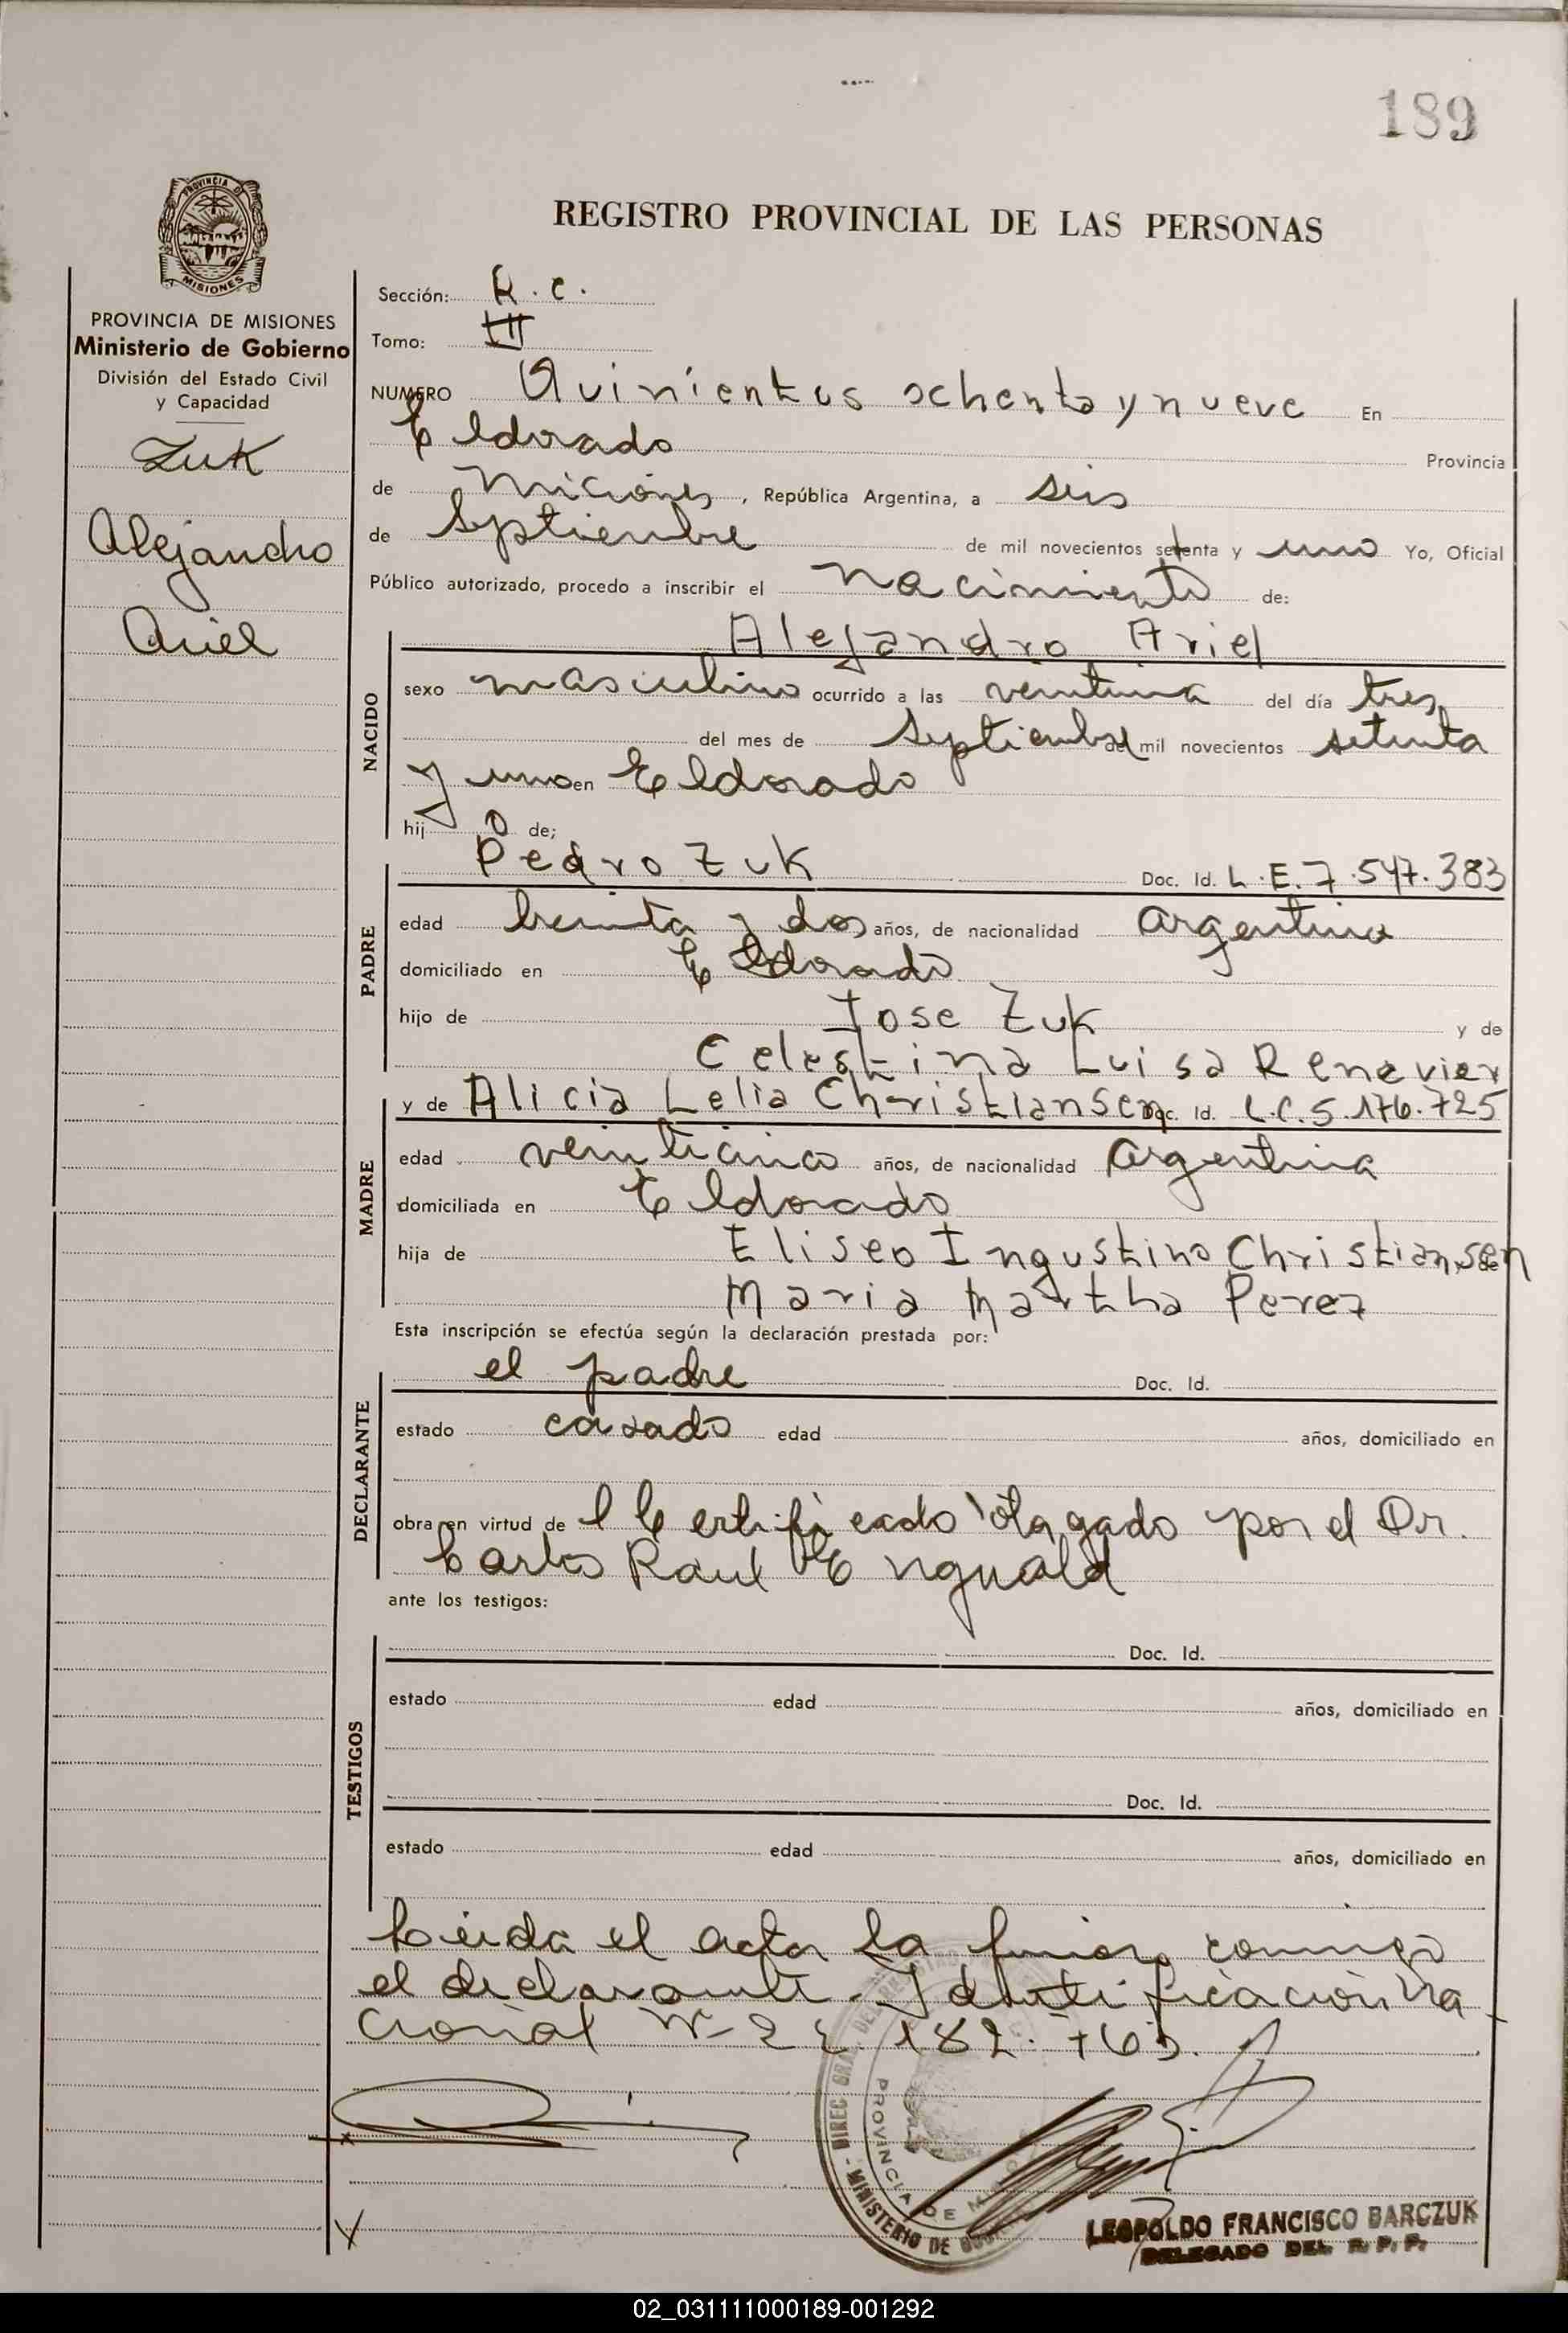 189
PROVINCIA DE
MISIONES
REGISTRO PROVINCIAL DE LAS PERSONAS
PROVINCIA DE MISIONES
Ministerio de Gobierno
División del Estado Civil
y Capacidad
Zuk
Alejandro
Ariel
Sección: R.C.
Tomo: III
NUMERO Quinientos ochenta y nueve En
Eldorado Provincia
de Misiones, República Argentina, a seis
de Septiembre de mil novecientos setenta y uno Yo, Oficial
Público autorizado, procedo a inscribir el nacimiento de:
NACIDO
Alejandro Ariel
sexo masculino ocurrido a las veintiuna del día tres
del mes de Septiembre de mil novecientos setenta
y uno en Eldorado
hij o de;
PADRE
Pedro Zuk Doc. Id. L.E.7.547.383
edad treinta y dos años, de nacionalidad argentina
domiciliado en Eldorado
hijo de Jose Zuk y de
Celestina Luisa Renevier
MADRE
y de Alicia Lelia Christiansen Doc. Id. L.C.5.176.725
edad veinticinco años, de nacionalidad argentina
domiciliada en Eldorado
hija de Eliseo Ingustino Christiansen
Maria Martha Perez
Esta inscripción se efectúa según la declaración prestada por:
DECLARANTE
el padre Doc. Id.
estado casado edad años, domiciliado en
obra en virtud de l Certificado otorgado por el Dr.
Carlos Raul
ante los testigos:
TESTIGOS
Doc. Id.
estado edad años, domiciliado en
Doc. Id.
estado edad años, domiciliado en
Leida el acta la firma conmigo
el declarante. Identificación Na
cional Nº 22.182.765.
DIREC. GRAL. DEL REGISTRO
PROVINCIA DE MISIONES
MINISTERIO DE GOBIERNO
LEOPOLDO FRANCISCO BARCZUK
DELEGADO DEL R. P. P.
02_031111000189-001292